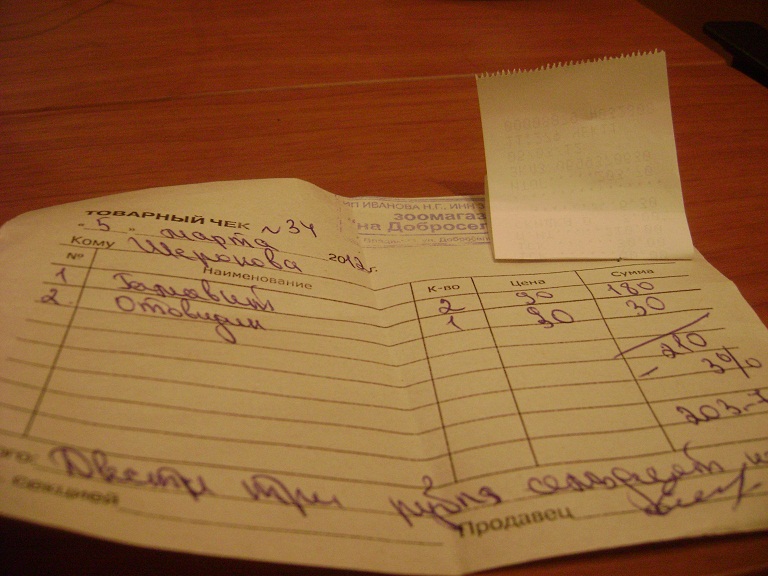 ИП ИВАНОВА Н.Г., ИНН
зоомагаз
на Добросел
ТОВАРНЫЙ ЧЕК № 34
" 5 " марта 2012 г.
Кому Шеронова
№ Наименование К-во Цена Сумма
1 Гамавит 2 90 180
2. Отоведин 1 30 30
210
- 3%
203-7
ого: Двести три рубля семьдесят
Продавец